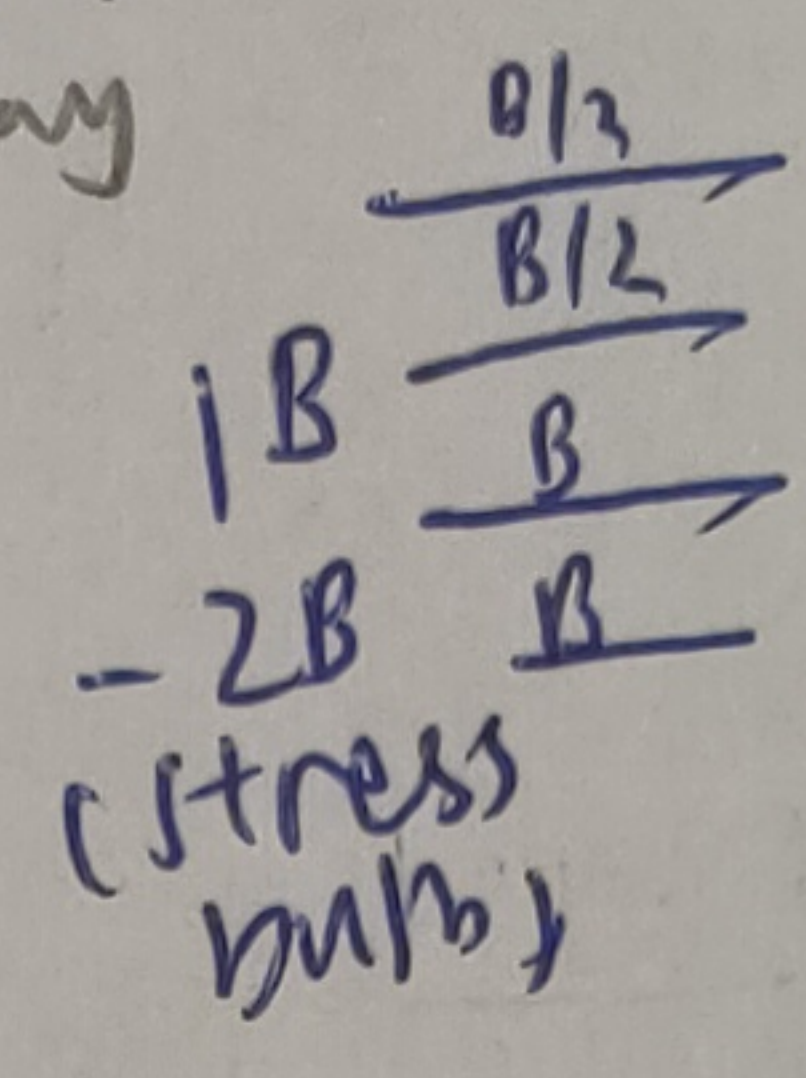 B/3
B/2
1B
B
-2B
B
(stress
bulb)